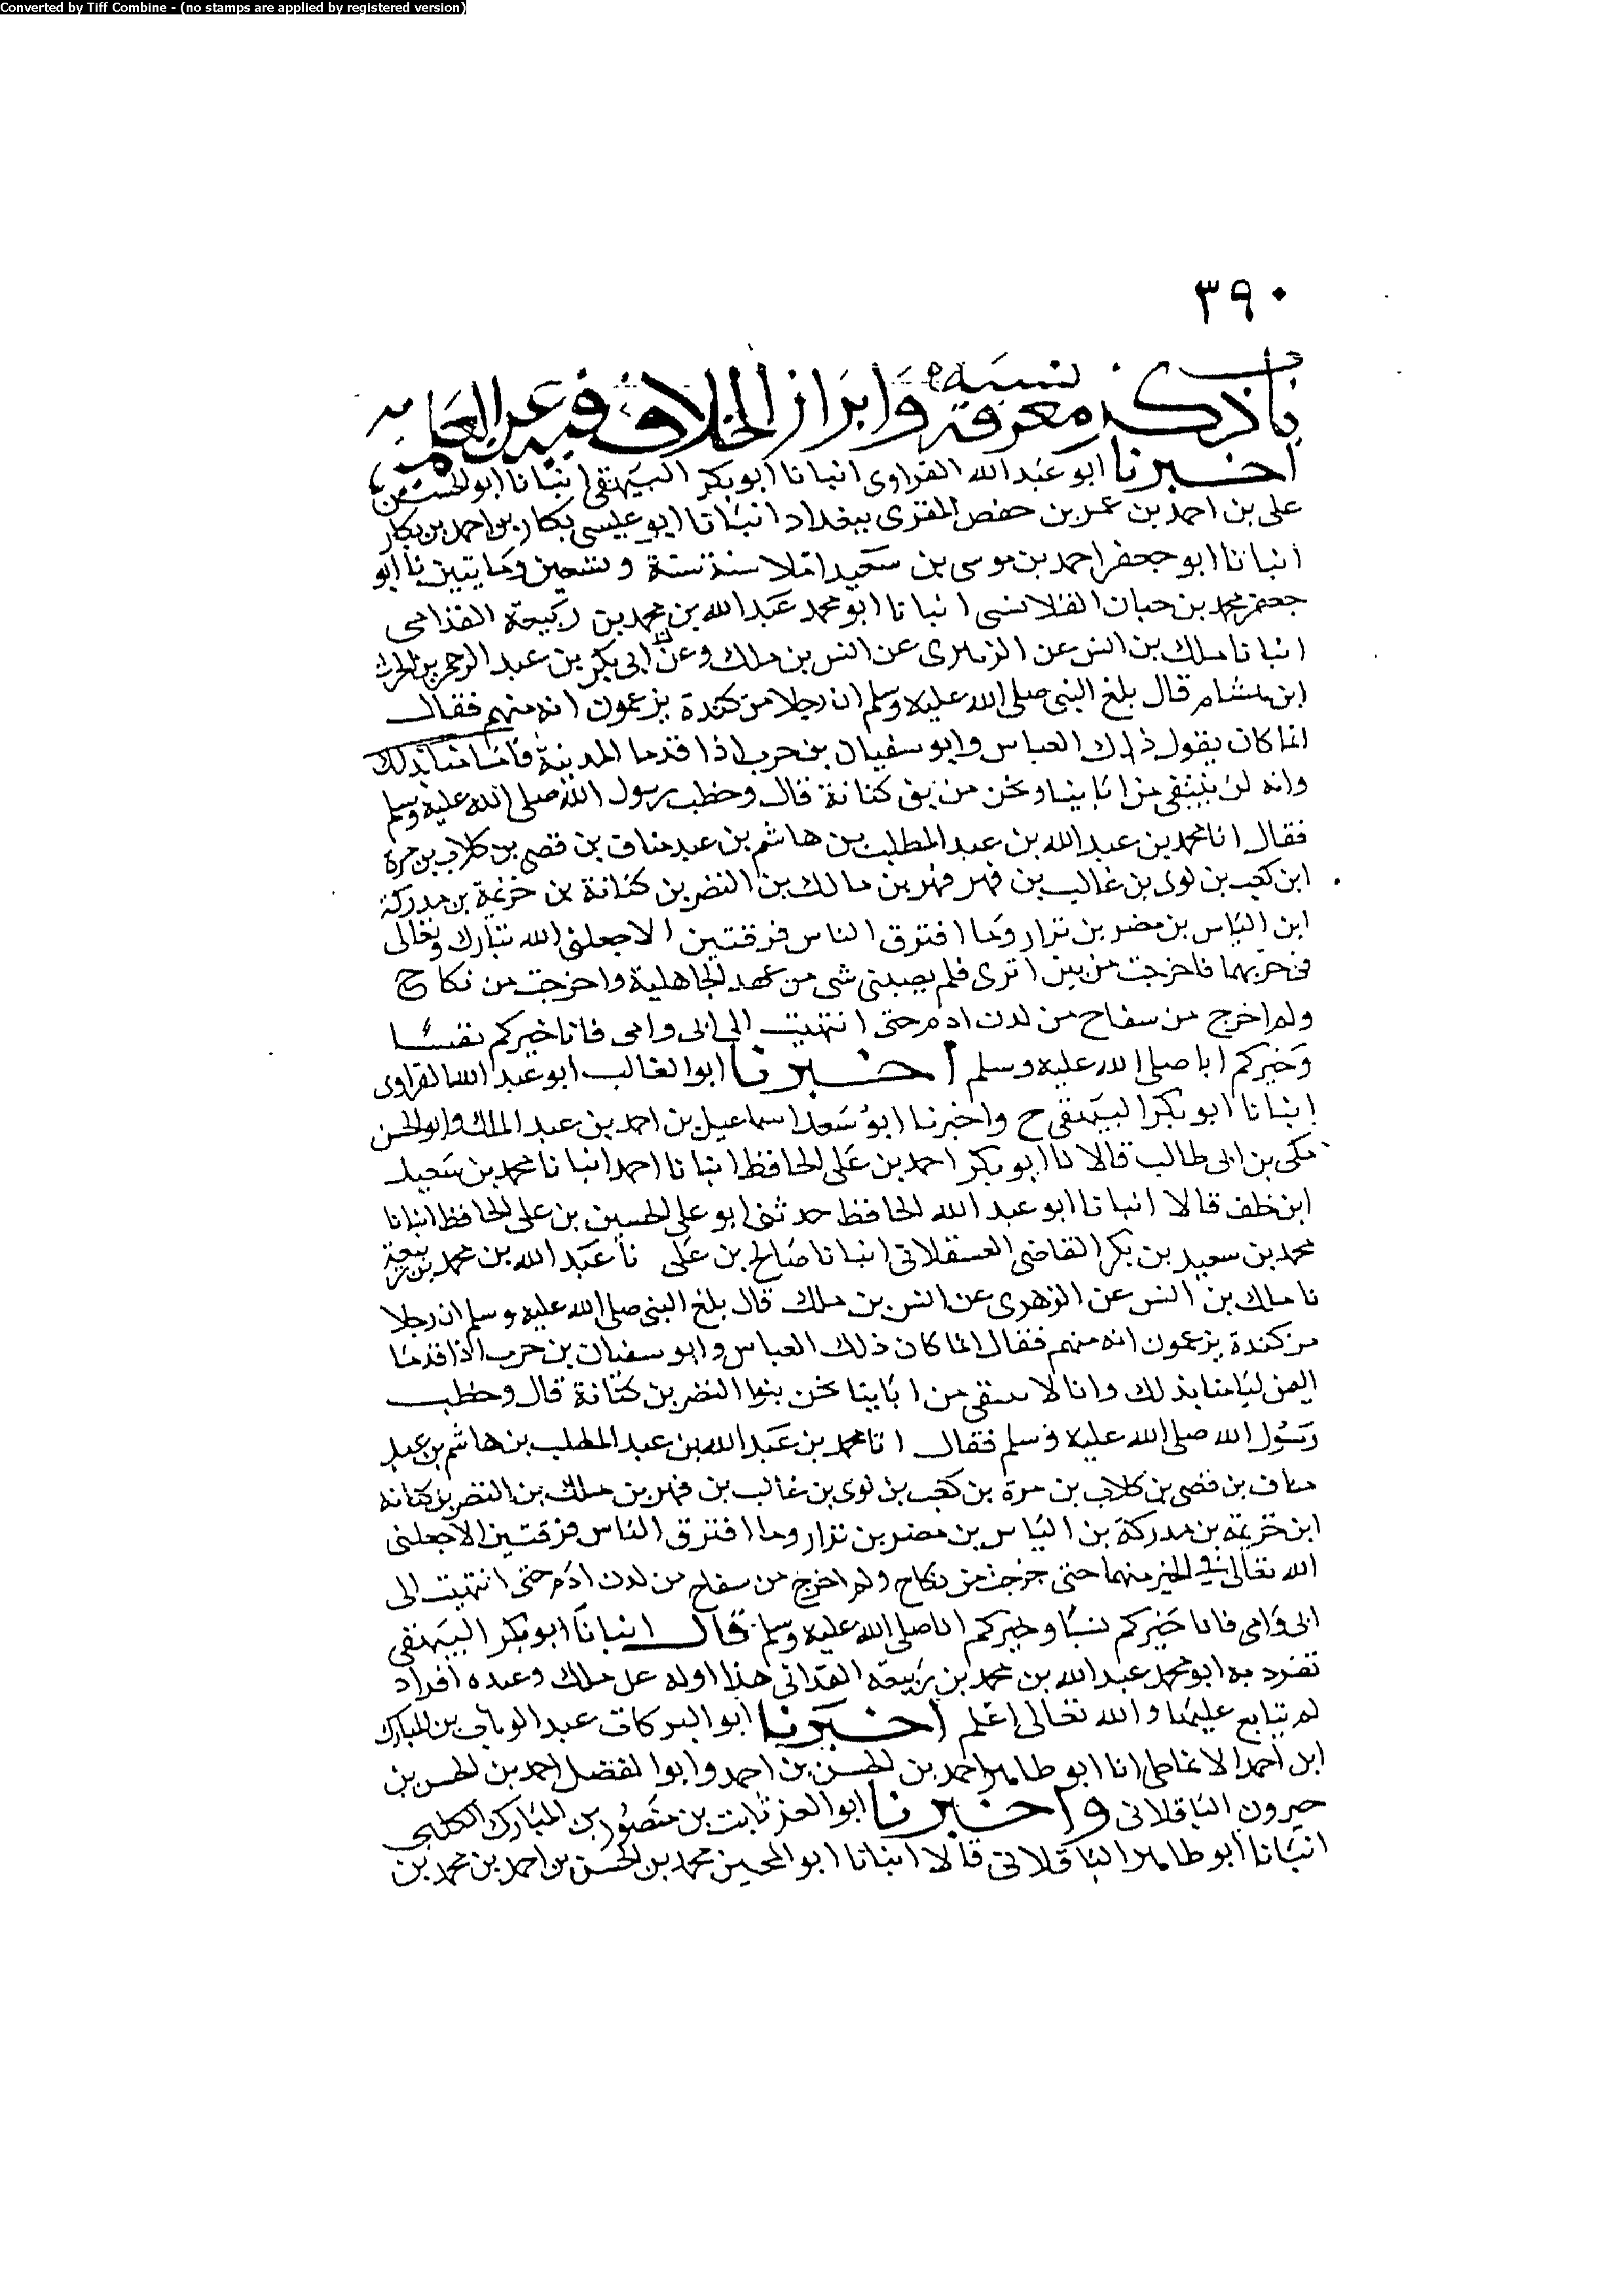 Converted by Tiff Combine - (no stamps are applied by registered version)
٣٩٠
باب ذكر معرفة نسبه وابراز الخلاف فيه عن العالمين به
اخبرنا ابو عبد الله الفراوى انبانا ابو بكر البيهقى انبانا ابو الحسن
على بن احمد بن عمر بن حفص المقرى ببغداد انبانا ابو عيسى بكار بن احمد بن بكار
انبانا ابو جعفر احمد بن موسى بن سعيد املا سنة ستة وتسعين ومايتين نا ابو
جعفر محمد بن حبان القلانسى انبانا ابو محمد عبد الله بن محمد بن ربيعة القذامى
انبانا ملك بن انس عن الزهرى عن انس بن ملك وعن ابى بكر بن عبد الرحمن بن الحرث
ابن هشام قال بلغ النبى صلى الله عليه وسلم ان رجلا من كندة يزعمون انه منهم فقال
انما كان يقول ذلك العباس وابو سفيان بن حرب اذا قدما المدينة فامنا بذلك
وانه لن ننتفى من ابائنا ونحن من بنى كنانة قال وخطب رسول الله صلى الله عليه وسلم
فقال انا محمد بن عبد الله بن عبد المطلب بن هاشم بن عبد مناف بن قصى بن كلاب بن مرة
ابن كعب بن لوى بن غالب بن فهر فهر بن مالك بن النضر بن كنانة بن خزيمة بن مدركة
ابن الياس بن مضر بن نزار وما افترق الناس فرقتين الا جعلنى الله تبارك وتعالى
فى خيرهما فاخرجت من بين ابوى فلم يصبنى شى من عهد الجاهلية واخرجت من نكاح
ولم اخرج من سفاح من لدن ادم حتى انتهيت الى ابى وامى فانا خيركم نفسًا
وخيركم ابا صلى الله عليه وسلم اخبرنا ابو الغالب ابو عبد الله الفراوى
انبانا ابو بكر البيهقى ح واخبرنا ابو سعد اسماعيل بن احمد بن عبد الملك وابو الحسن
مكى بن ابى طالب قالا نا ابو بكر احمد بن على الحافظ انبانا احمد انبانا محمد بن سعيد
ابن خلف قالا انبانا ابو عبد الله الحافظ حدثنى ابو على الحسين بن على الحافظ انبانا
محمد بن سعيد بن بكر القاضى العسقلانى انبانا صالح بن على نا عبد الله بن محمد بن ربيعة
نا ملك بن انس عن الزهرى عن انس بن ملك قال بلغ النبى صلى الله عليه وسلم ان رجلا
من كندة يزعمون انه منهم فقال انما كان ذلك العباس وابو سفيان بن حرب اذا قدما
اليمن ليامنا بذلك وانا لا ننتفى من ابائنا نحن بنوا النضر بن كنانة قال وخطب
رسول الله صلى الله عليه وسلم فقال انا محمد بن عبد الله بن عبد المطلب بن هاشم بن عبد
مناف بن قصى بن كلاب بن مرة بن كعب بن لوى بن غالب بن فهر بن ملك بن النضر بن كنانه
ابن خزيمة بن مدركة بن الياس بن مضر بن نزار وما افترق الناس فرقتين الا جعلنى
الله تعالى فى الخير منهما حتى خرجت من نكاح ولم اخرج من سفاح من لدن ادم حتى انتهيت الى
ابى وامى فانا خيركم نسبًا وخيركم ابا صلى الله عليه وسلم قال انبانا ابو بكر البيهقى
تفرد به ابو محمد عبد الله بن محمد بن ربيعه القدانى هذا وله عن ملك وغيره افراد
لم يتابع عليها والله تعالى اعلم اخبرنا ابو البركات عبد الوهاب بن المبارك
ابن احمد الانماطى انا ابو طاهر احمد بن الحسن بن احمد وابو الفضل احمد بن الحسن بن
خيرون الباقلانى واخبرنا ابو العز ثابت بن منصور بن المبارك الكلبى
انبانا ابو طاهر الباقلانى قالا انبانا ابو الحسين محمد بن الحسن بن احمد بن محمد بن